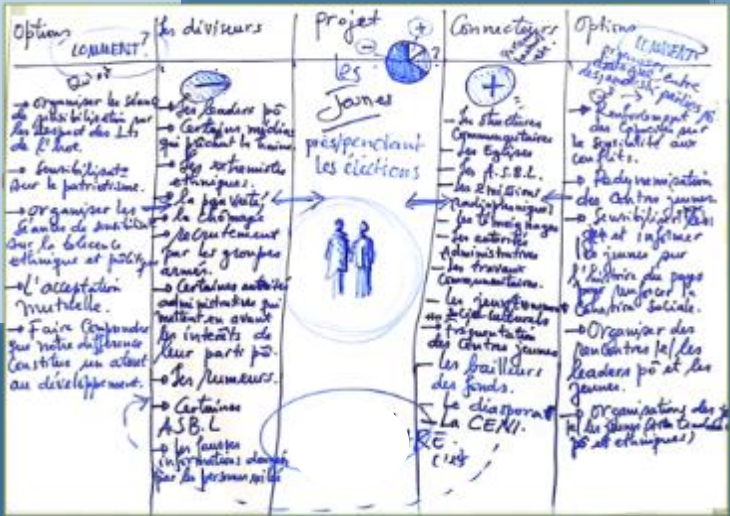 Options
COMMENT?
Qui ??
→ Organiser les séances
de sensibilisation sur
les respect des
de l'hoe.
→ Sensibilisat°
sur le patriotisme.
→ Organiser les
séances de
sur la
ethnique et
→ L'acceptation
mutuelle.
→ Faire Comprendre
que notre différence
constitue un atout
au développement.
Les diviseurs
→ Les leaders pô
→ Certains médias
qui prêchent la haine
→ Les extremistes
ethniques.
→ La pauvreté
→ la chômage
→ recrutement
par les groupes
armés.
→ Certaines autorités
administratives qui
mettent en avant
les interêts de
leur parti pô.
→ Les rumeurs.
→ Certaines
A.S.B.L
→ Les fausses
informations
par les
projet
les
Jeunes
près/pendant
les élections
Connecteurs
- Les structures
Communautaires
- Les Eglises
- Les A.S.B.L.
- Les émissions
radiophoniques
- Les témoignages
- Les autorités
Administratives
- Les travaux
Communautaires.
- Les jeux
- fréquentation
des Centres jeunes
- Les bailleurs
des fonds.
- Le diaspora
- La CENI.
Options
COMMENT?
entre
→ Renforcement
des sur
la sensibilité aux
conflits.
→ Redynamisation
des Centres jeunes
→
et informer
les jeunes sur
l'histoire du pays
pour renforcer la
Cohésion Sociale.
→ Organiser des
rencontres les
leaders pô et les
jeunes.
→ Organisations des
pô et ethniques)